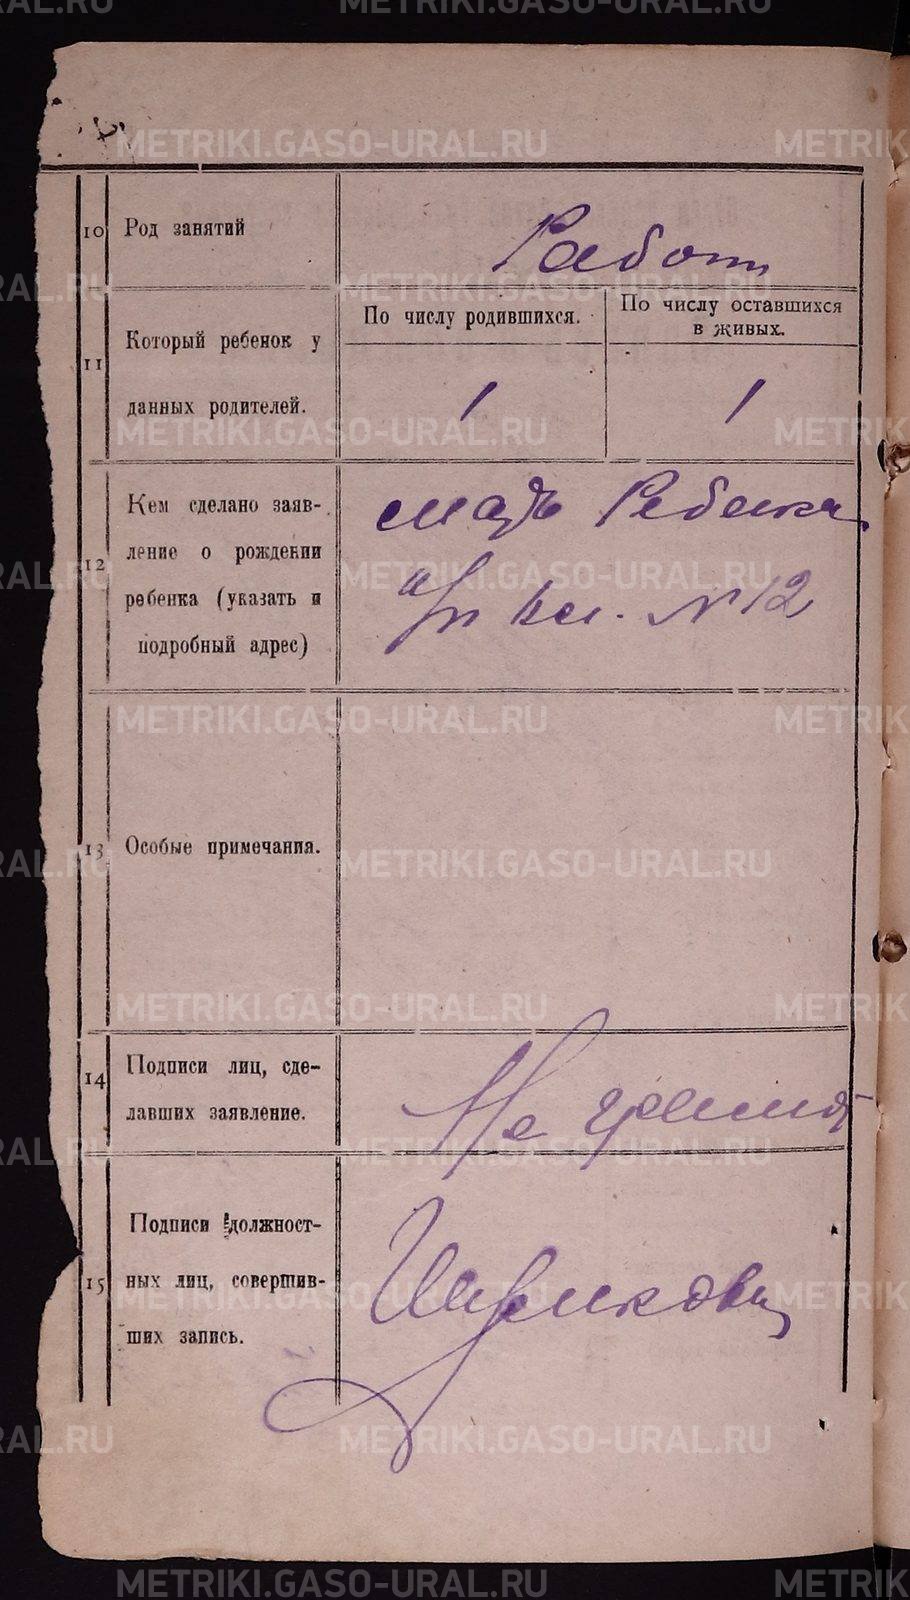 10 Род занятий
Работн
11 Который ребенок у
данных родителей.
По числу родившихся.
По числу оставшихся
в живых.
1 1
12 Кем сделано заяв-
ление о рождении
ребенка (указать и
подробный адрес)
мать Ребенка
№ 12
13 Особые примечания.
14 Подписи лиц, сде-
лавших заявление.
Не грамот
15 Подписи должност-
ных лиц, совершив-
ших запись.
METRIKI.GASO-URAL.RU